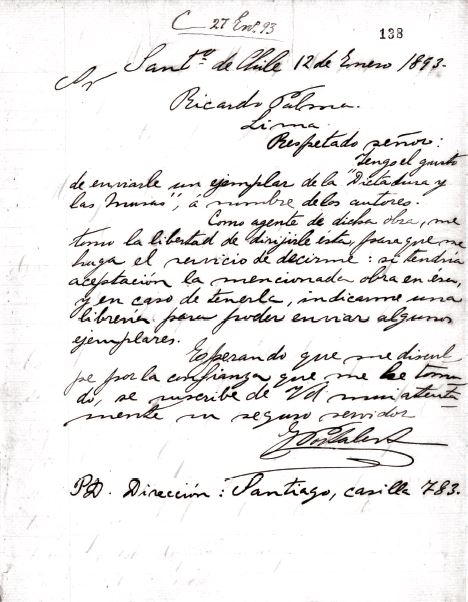 C 27 En. 93
138
Sant.º de Chile 12 de Enero 1893.
Sr
Ricardo Palma.
Lima.
Respetado señor:
Tengo el gusto
de enviarle un ejemplar de la "Dictadura y
las Musas", a nombre de los autores.
Como agente de dicha obra, me
tomo la libertad de dirijirle ésta, para que me
haga el servicio de decirme: si tendria
aceptación la mencionada obra en ésa,
y en caso de tenerla, indicarme una
libreria para poder enviar algunos
ejemplares.
Esperando que me discul-
pe por la confianza que me he toma-
do, se suscribe de Vd mui atenta
mente su seguro servidor
PD. Dirección: Santiago, casilla 783.